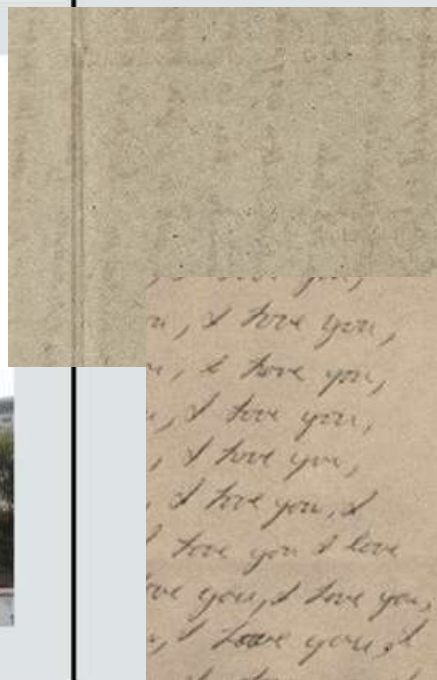 you,
, I love you,
, I love you,
, I love you,
, I love you,
I love you, I
love you I love
you, I love you,
, I love you, I